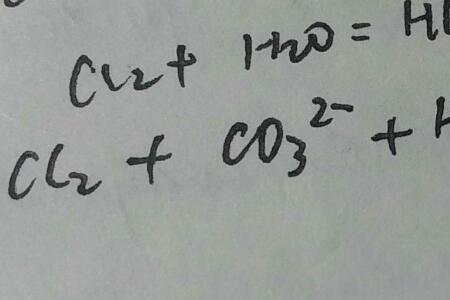 Cl₂ + H₂O = H
Cl₂ + CO₃²⁻ +